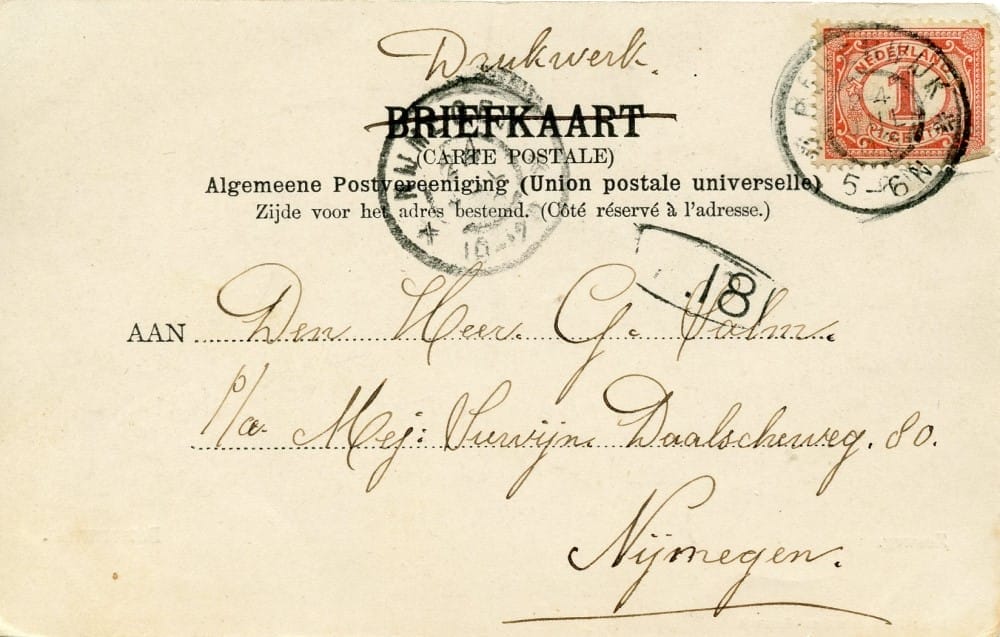 Drukwerk.
BRIEFKAART
(CARTE POSTALE)
Algemeene Postvereeniging (Union postale universelle)
Zijde voor het adres bestemd. (Côté réservé à l'adresse.)
NEDERLAND
1
CENT
5-6N
.18
AAN Den Heer. G. Palm.
p/a Mej: Daalscheweg. 80.
Nijmegen.